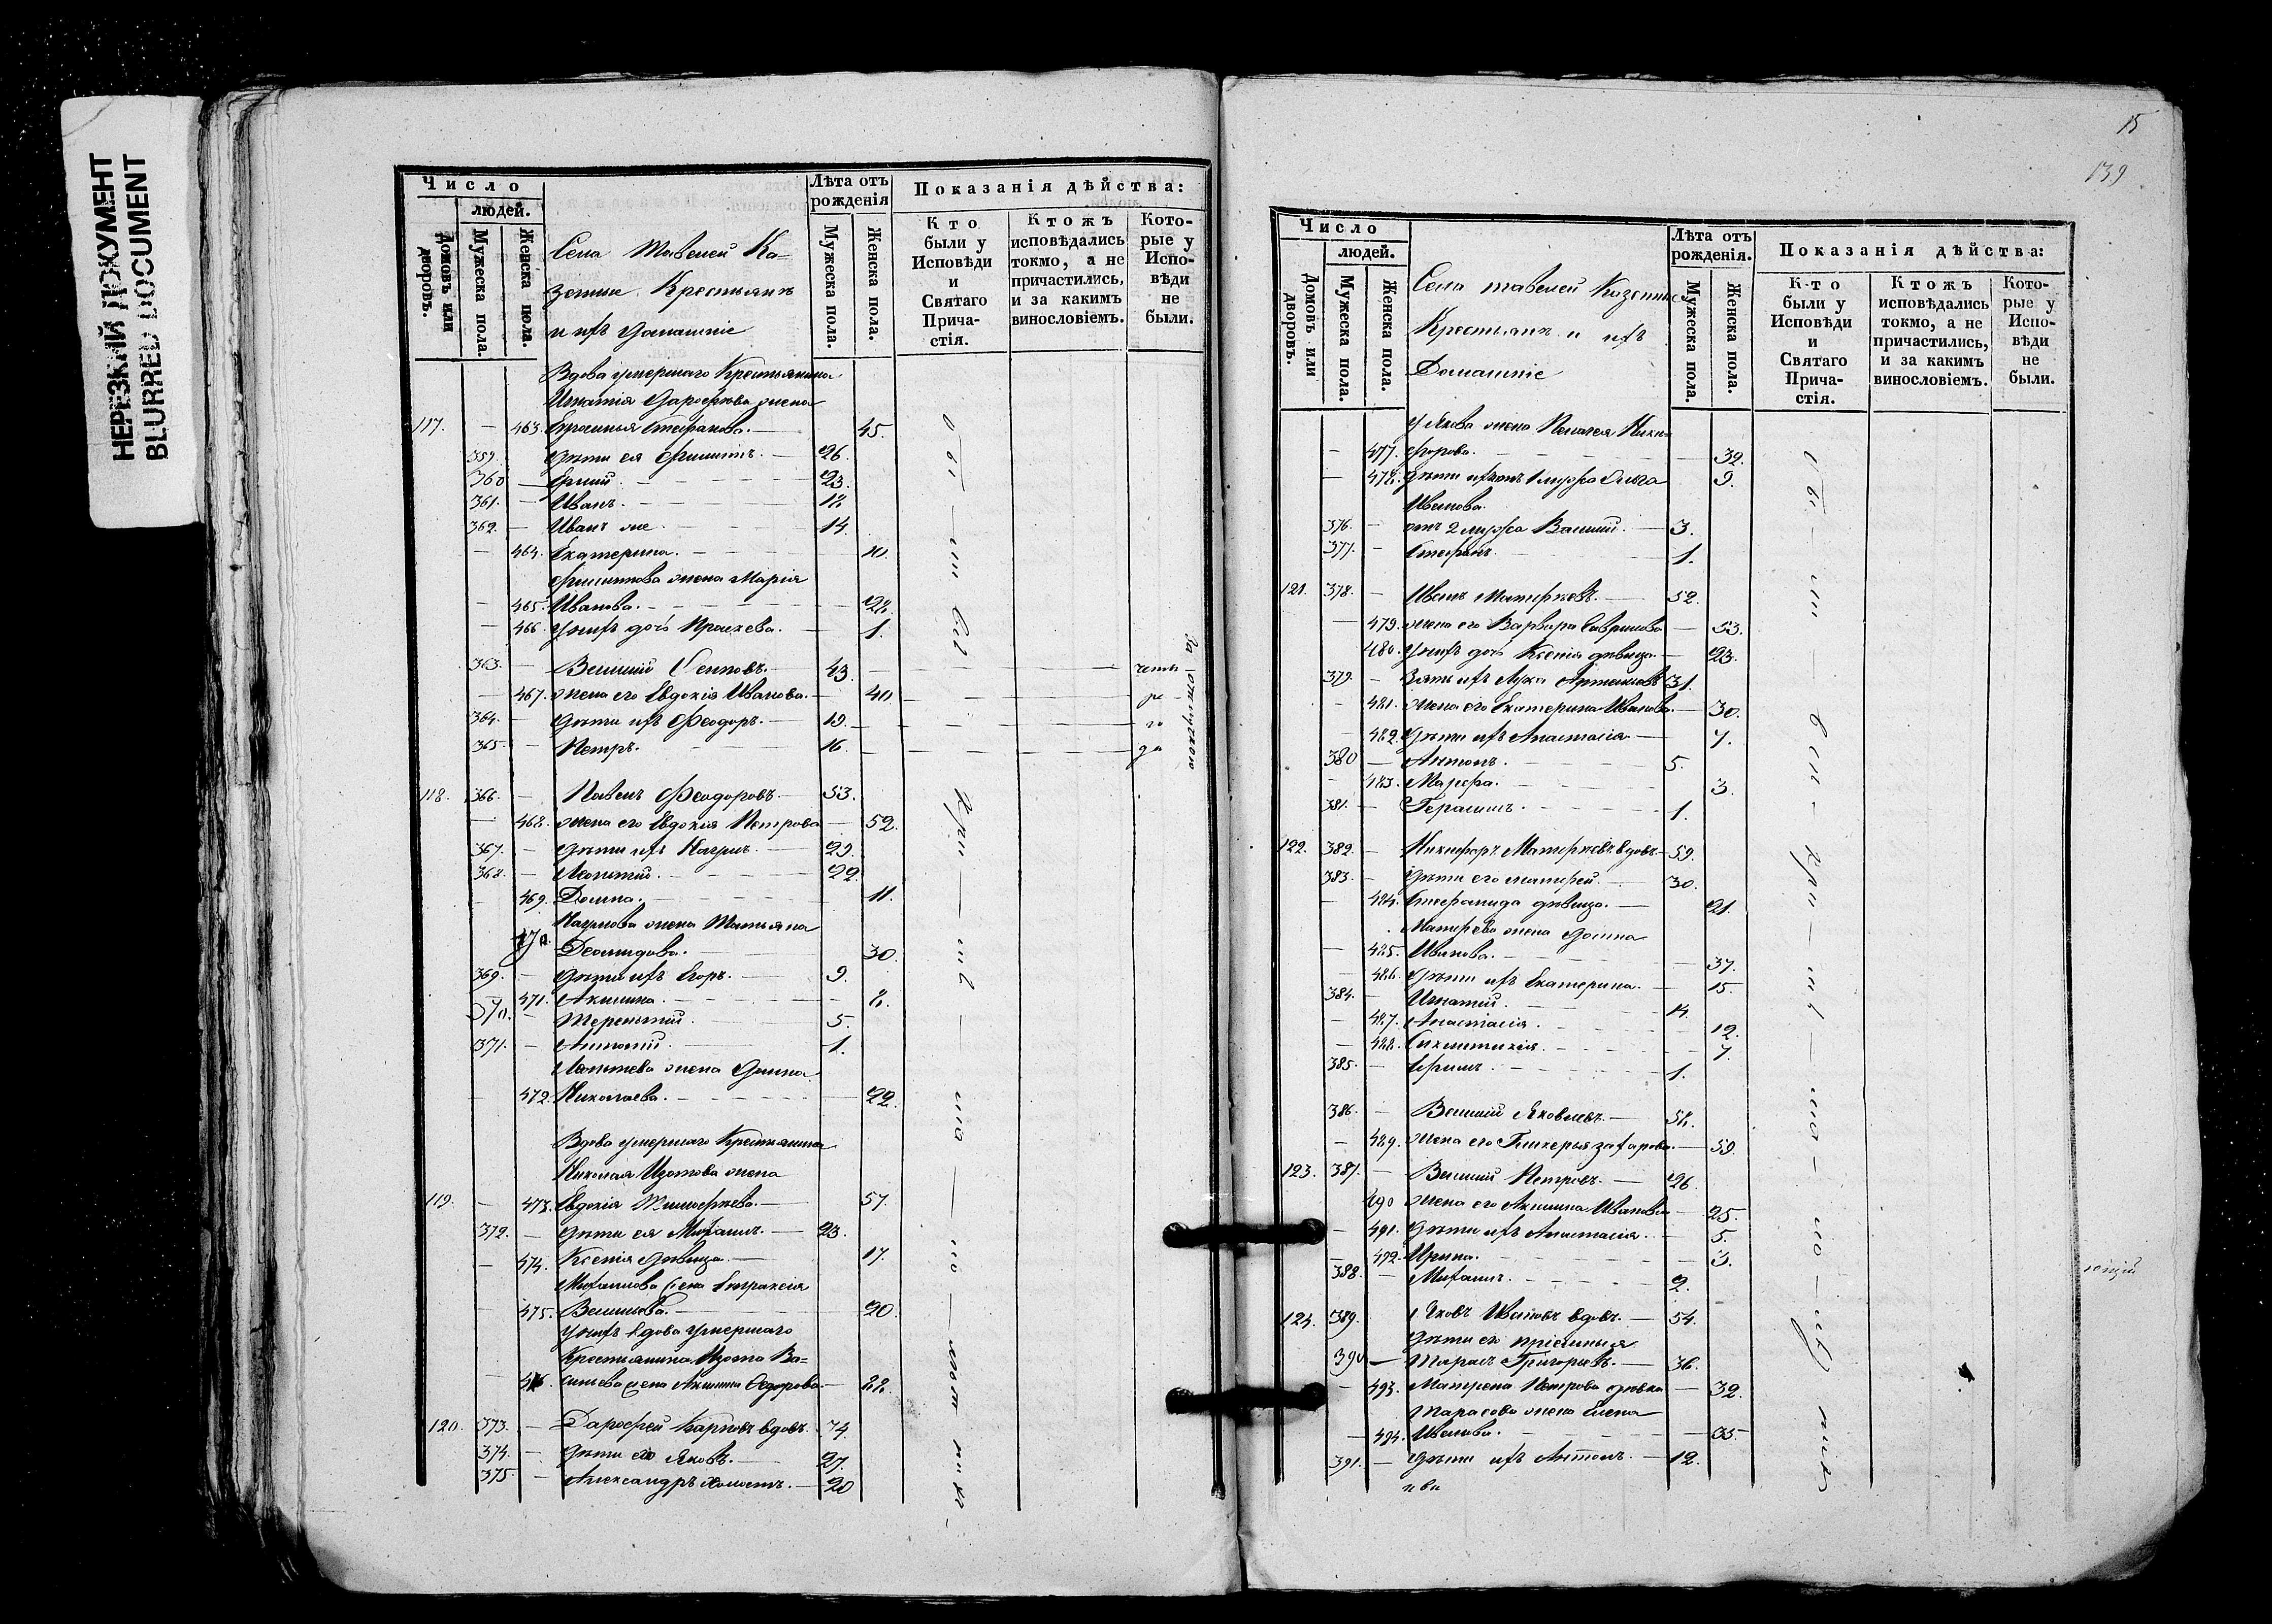 НЕРЕЗКИЙ ДОКУМЕНТ
BLURRED DOCUMENT
Число
людей.
Домовъ или дворовъ.
Мужеска пола.
Женска пола.
Села Тавелей Ка=
зенные Крестьянъ
и ихъ Домашніе
Лѣта отъ рожденія
Мужеска пола.
Женска пола.
Показанія дѣйства:
Кто были у Исповѣди и Святаго Прича-стія.
Ктожъ исповѣдались токмо, а не причастились, и за какимъ винословіемъ.
Кото-рые у Испо-вѣди не были.
Вдова умершаго Крестьянина
Игнатія жена
117. — 463. Стефанова. — 45.
359. дѣти ея Филиппъ. — 26.
360 — 23.
361. — Иванъ. — 18.
362. — Иванъ же — 14.
— 464. Екатерина. — 10.
Филиппова жена Марія
— 465. Ивановa. — 28.
— 466. у нихъ дочь — 1.
363. — Василій — 43.
— 467. жена его Евдокія Иванова. — 40
364. — дѣти ихъ Феодоръ. — 19.
365. — Петръ. — 16.
За отлучкою
118. 366. — Павелъ Феодоровъ. — 53.
— 468. жена его Евдокія Петрова — 52.
367. — дѣти ихъ Наумъ. — 29.
368. — Леонтій. — 22.
— 469. Домна. — 11.
Наумова жена Татьяна
470. Деомидова. — 30.
369. — дѣти ихъ Егоръ. — 9.
— 471. Акилина. — 8.
370. — Терентій. — 5.
371. — Антоній. — 1.
Леонтева жена Домна
— 472. Николаева. — 22.
Вдова умершаго Крестьянина
Николая Изотова жена
119. — 473. Евдокія Тимоѳеева. — 57.
372. — дѣти ея Михаилъ. — 23.
— 474. Ксенія дѣвица. — 17.
Михаилова жена Евпраксія
— 475. Васильева. — 20.
у нихъ вдова умершаго
Крестьянина Изота Ва=
— 476. сильева жена Акилина Ѳедорова — 28.
120. 373. — Дароѳей Карповъ вдовъ. — 74.
374. — дѣти его Яковъ. — 27.
375. — Александръ холостъ. — 20
15
139
Число
людей.
Домовъ или дворовъ.
Мужеска пола.
Женска пола.
Села тавелей Казенные
Крестьянъ и ихъ
Домашніе
Лѣта отъ рожденія.
Мужеска пола.
Женска пола.
Показанія дѣйства:
Кто были у Исповѣди и Святаго Прича-стія.
Ктожъ исповѣдались токмо, а не причастились, и за какимъ винословіемъ.
Кото-рые у Испо-вѣди не были.
у Якова жена Пелагея Ники=
— 477. форова. — 32.
— 478. дѣти ихъ отъ 1 мужа Ольга — 9.
Иванова.
376. — отъ 2 мужа Василій. — 3.
377. — Стефанъ. — 1.
121. 378. — Иванъ Матѳеевъ. — 52.
— 479. жена его Варвара Гаврилова — 53.
480. у нихъ дочь Ксенія дѣвица. — 23.
379. — Зять ихъ Лука — 31.
— 481. жена его Екатерина Иванова. — 30.
— 482. дѣти ихъ Анастасія — 7.
380 — Антонъ. — 5.
— 483. Марфа. — 3.
381. — Герасимъ. — 1.
122. 382. — Никифоръ Матѳеевъ вдовъ — 59.
383. — дѣти его Матѳей. — 30.
— 484. Стефанида дѣвица. — 21.
Матѳева жена Домна
— 485. Иванова. — 37.
— 486. дѣти ихъ Екатерина. — 15.
384. — Игнатій. — 14.
— 487. Анастасія. — 12.
— 488. Синклитикія. — 7.
385. — Ефимъ. — 1.
386. — Василій Яковлевъ. — 58.
— 489. жена его Гликерья Захарова. — 59.
123. 387. — Василій Петровъ. — 26.
490 жена его Акилина Иванова — 25.
— 491. дѣти ихъ Анастасія. — 5.
— 492. Ирина. — 3.
388. — Михаилъ. — 2.
124. 389. Яковъ Ивановъ вдовъ. — 54.
дѣти его пріемныя
390 — Тарасъ Григорьевъ. — 36.
— 493. Матрена Петрова дѣвка — 32.
Тарасова жена Елена
— 494. Иванова. — 35.
391. — дѣти ихъ Антонъ. — 12.